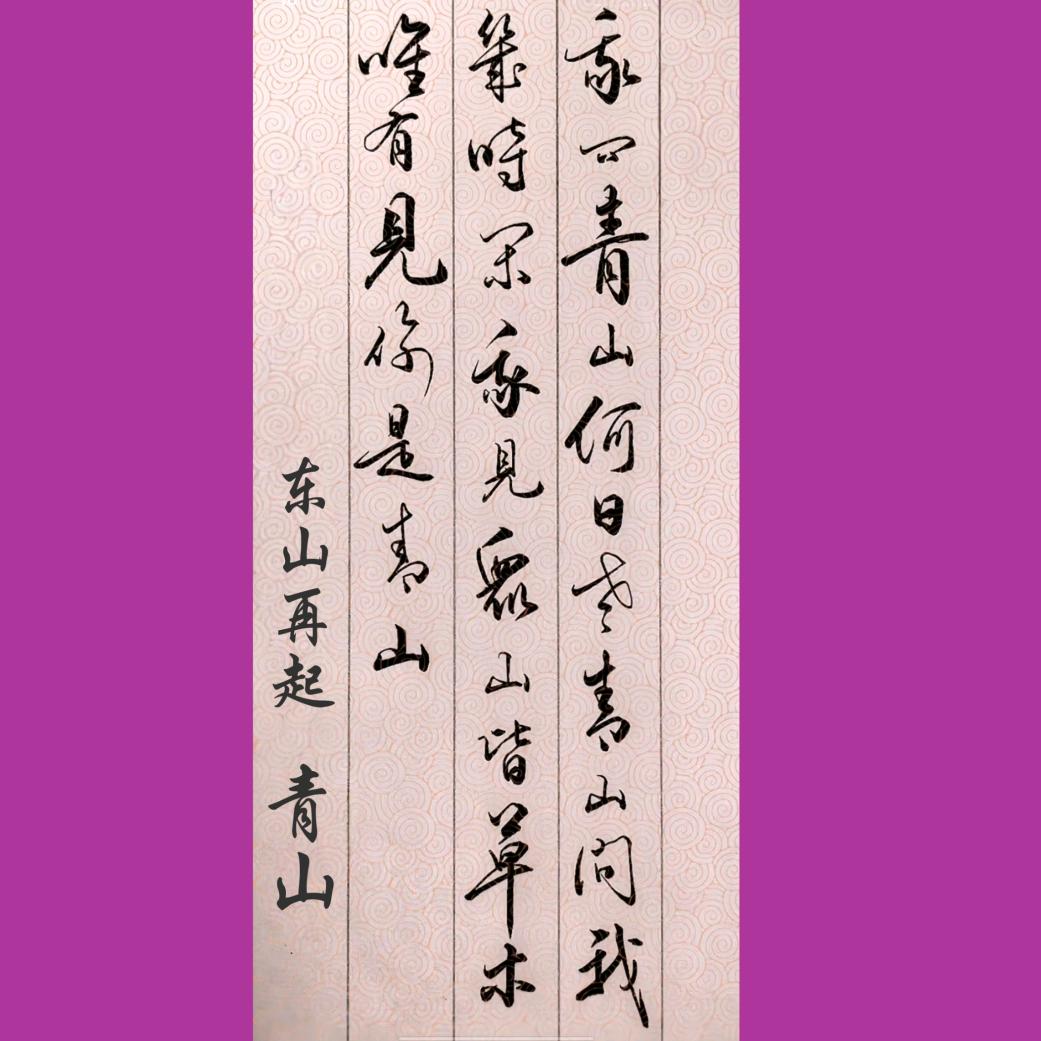 我问青山何日老青山问我
幾時閑我見眾山皆草木
唯有見你是青山
东山再起 青山